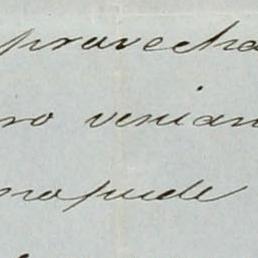 provecha
ro venian
no pude